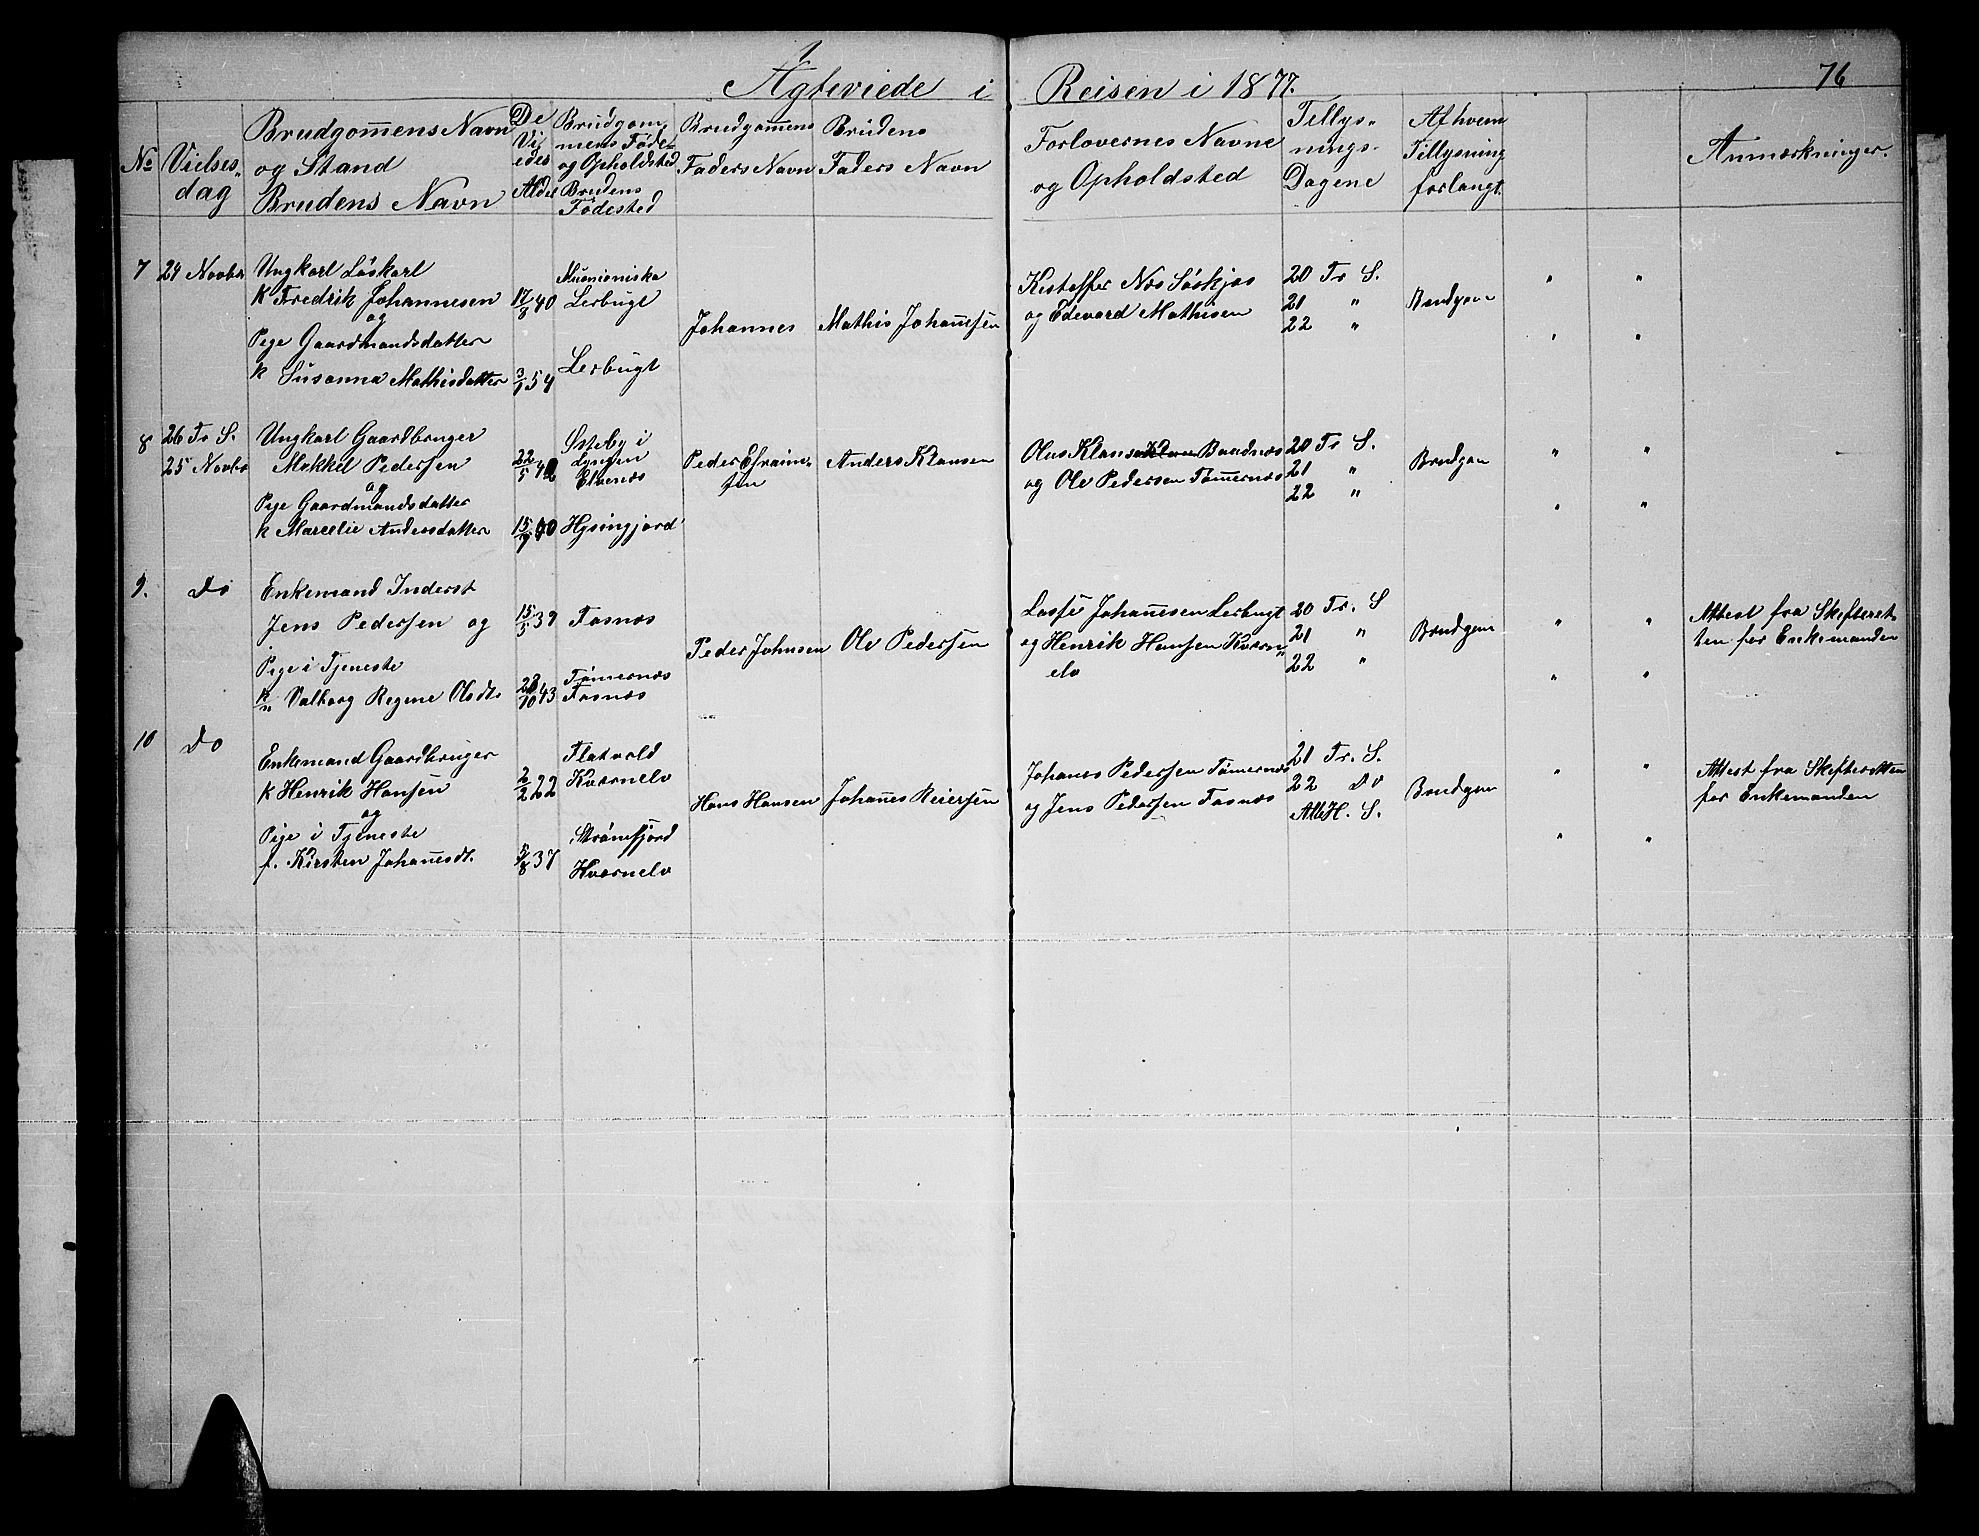 Ægteviede i Reisen i 1877.
76
No
Vielses-
dag
Brudgomens Navn
og Stand
Brudens Navn
De
Vi
edes
Alder
Brudgom-
mens Føde-
og Opholdsted
Brudens
Fødested
Brudgomens
Faders Navn
Brudens
Faders Navn
Forlovernes Navne
og Opholdsted
Tillys-
nings-
Dagene
Af hvem
Tillysning
forlangt.
Anmærkninger.
7
24 Novbr
Ungkarl Løskarl
K Fredrik Johannesen
og
Pige Gaardmandsdatter
k Susanna Mathisdatter
17/8 40
3/1 54
Muonioniska
Lerbugt
Lerbugt
Johannes
Mathis Johanesen
Kristoffer Nos Søskjos
og Edevard Mathisen
20 Tr S.
21 "
22 "
Brudgom
" "
" "
8
26 Tr S.
25 Novbr
Ungkarl Gaardbruger
Mikkel Pedersen
og
Pige Gaardmandsdatter
k Marcelie Andersdatter
22/5 42
15/7 40
Østeby i
Lyngen
Elvenæs
Hysingjord
Peder Efraim-
sen
Anders Klausen
Olus Klausen Baadnæs
og Ole Pedersen Tømernæs
20 Tr S.
21 "
22 "
Brudgom
" "
" "
9.
Do
Enkemand Inderst
Jens Pedersen og
Pige i Tjeneste
k/n Valborg Regine Olsdt.
15/5 39
28/10 43
Fosnæs
Tømernæs
Fosnæs
Peder Johnsen
Ole Pedersen
Lasse Johanesen Lerbugt
og Henrik Hansen Kværn-
elv
20 Tr. S
21 "
22 "
Brudgom
" "
" "
Attest fra Skifteret-
ten for Enkemanden
10
Do
Enkemand Gaardbruger
K Henrik Hansen
og
Pige i Tjeneste
f. Kirsten Johanesdt.
2/2 22
5/8 37
Flatvold
Kværnelv
Strømfjord
Kværnelv
Hans Hansen
Johanes Reiersen
Johanes Pedersen Tømernæs
og Jens Pedersen Fosnæs
21 Tr. S.
22 Do
Alle H. S.
Brudgom
" "
" "
Attest fra Skifteretten
for Enkemanden